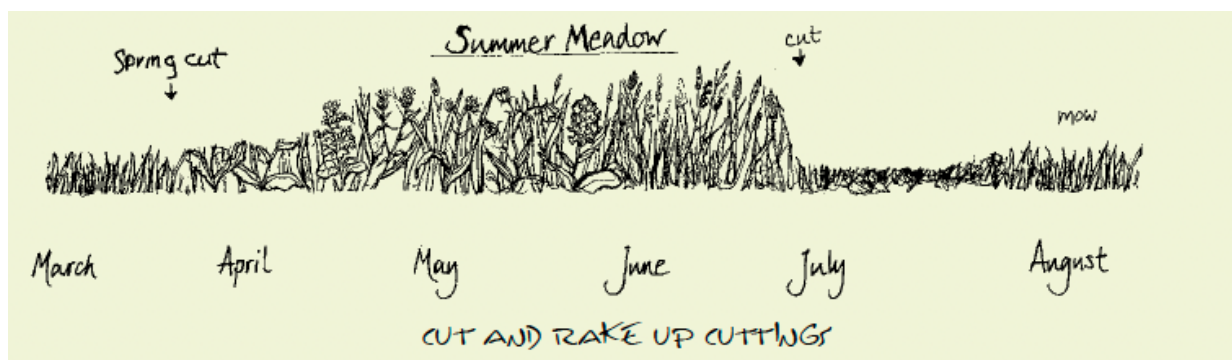 Summer Meadow
cut
Spring cut
mow
March April May June July August
CUT AND RAKE UP CUTTINGS